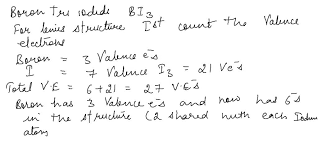 Boron Tri iodide BI3
For lewis structure Ist count the Valence
electrons
Boron = 3 Valence e-s
I = 7 Valence I3 = 21 Ve-s
Total V.E = 6+21 = 27 V.E-S
Boron has 3 Valence e-s and now has 6-s
in the structure (2 shared with each Iodine
atom